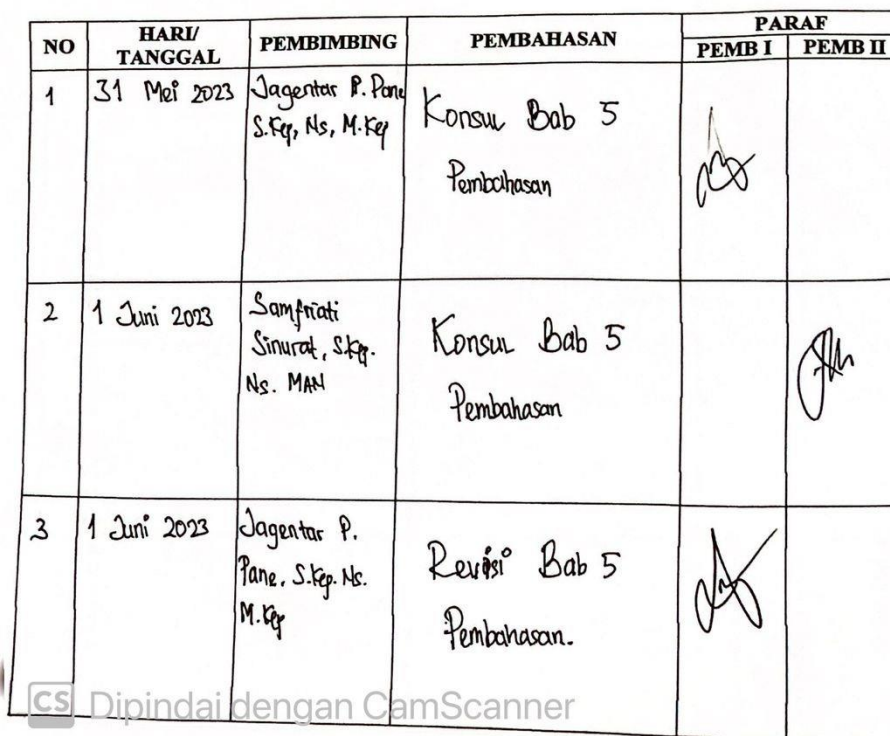 NO
HARI/
TANGGAL
PEMBIMBING
PEMBAHASAN
PARAF
PEMB I
PEMB II
1
31 Mei 2023
Jagentar P. Pane
S.Kep, Ns, M.Kep
Konsul Bab 5
Pembahasan
2
1 Juni 2023
Samfriati
Sinurat, S.Kep.
Ns. MAN
Konsul Bab 5
Pembahasan
3
1 Juni 2023
Jagentar P.
Pane, S.Kep. Ns.
M.Kep
Revisi Bab 5
Pembahasan.
CS Dipindai dengan CamScanner